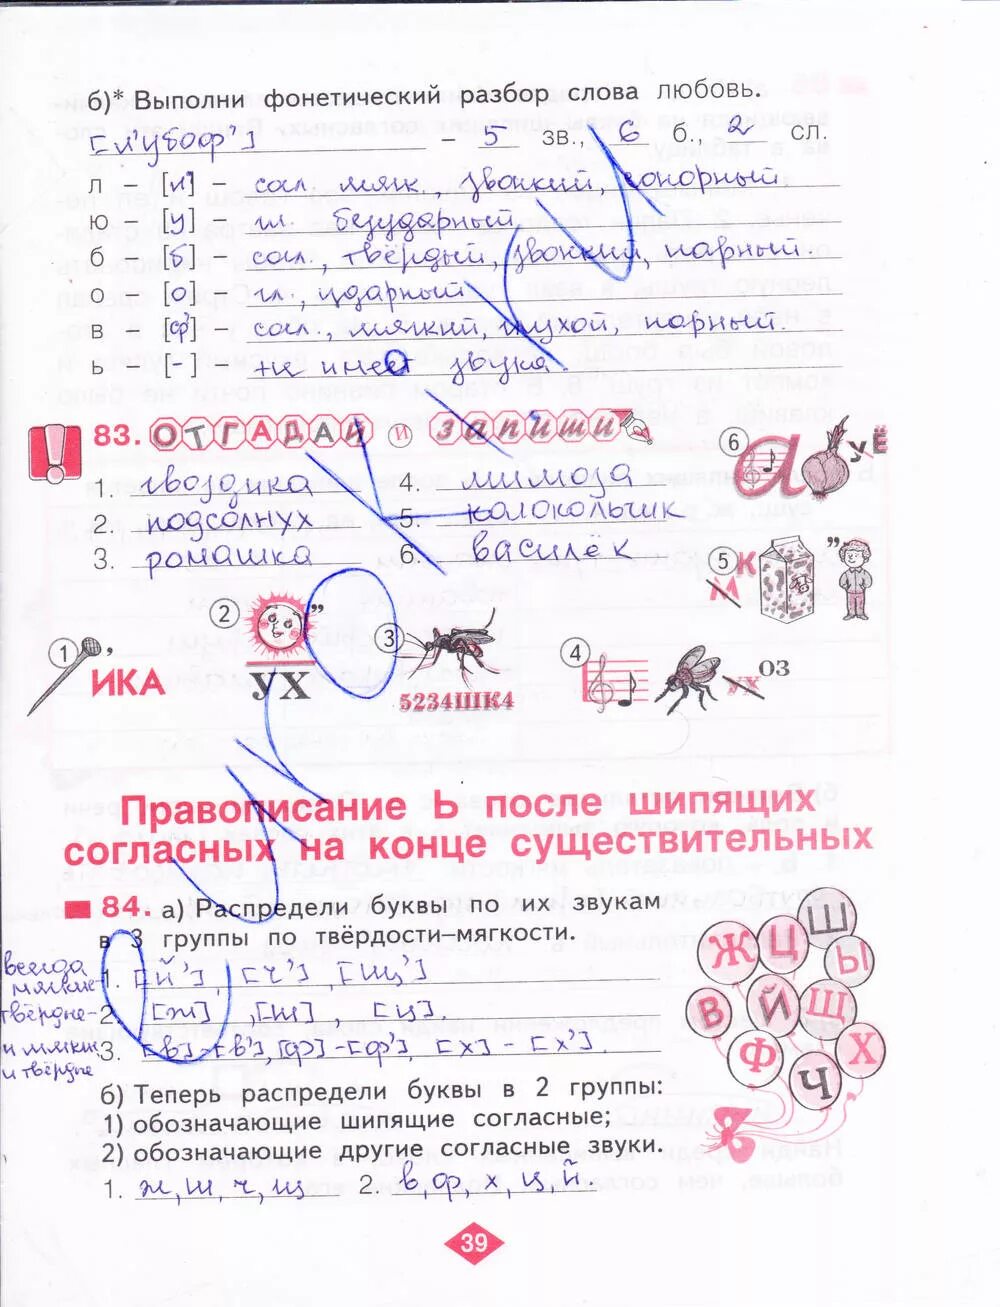 б)* Выполни фонетический разбор слова любовь.
[л'убоф'] – 5 зв., 6 б., 2 сл.
л – [л'] – согл. мягк., звонкий, сонорный.
ю – [у] – гл. безударный.
б – [б] – согл., твёрдый, звонкий, парный.
о – [о] – гл., ударный.
в – [ф'] – согл., мягкий, глухой, парный.
ь – [-] – не имеет звука
83. ОТГАДАЙ и запиши
1. гвоздика 4. мимоза
2. подсолнух 5. колокольчик
3. ромашка 6. василёк
6 а УЁ
5 М К ”
1 , ИКА
2 ” УХ
3 5234ШК4
4 УХ ОЗ
Правописание Ь после шипящих
согласных на конце существительных
84. а) Распредели буквы по их звукам
в 3 группы по твёрдости–мягкости.
всегда мягкие- 1. [й'], [ч'], [щ']
твёрдые- 2. [ж], [ш], [ц].
и мягкие и твёрдые 3. [в]-[в'], [ф]-[ф'], [х]-[х'].
Ж Ц Ш Ы В Й Щ Ф Ч Х
б) Теперь распредели буквы в 2 группы:
1) обозначающие шипящие согласные;
2) обозначающие другие согласные звуки.
1. ж, ш, ч, щ 2. в, ф, х, ц, й.
39